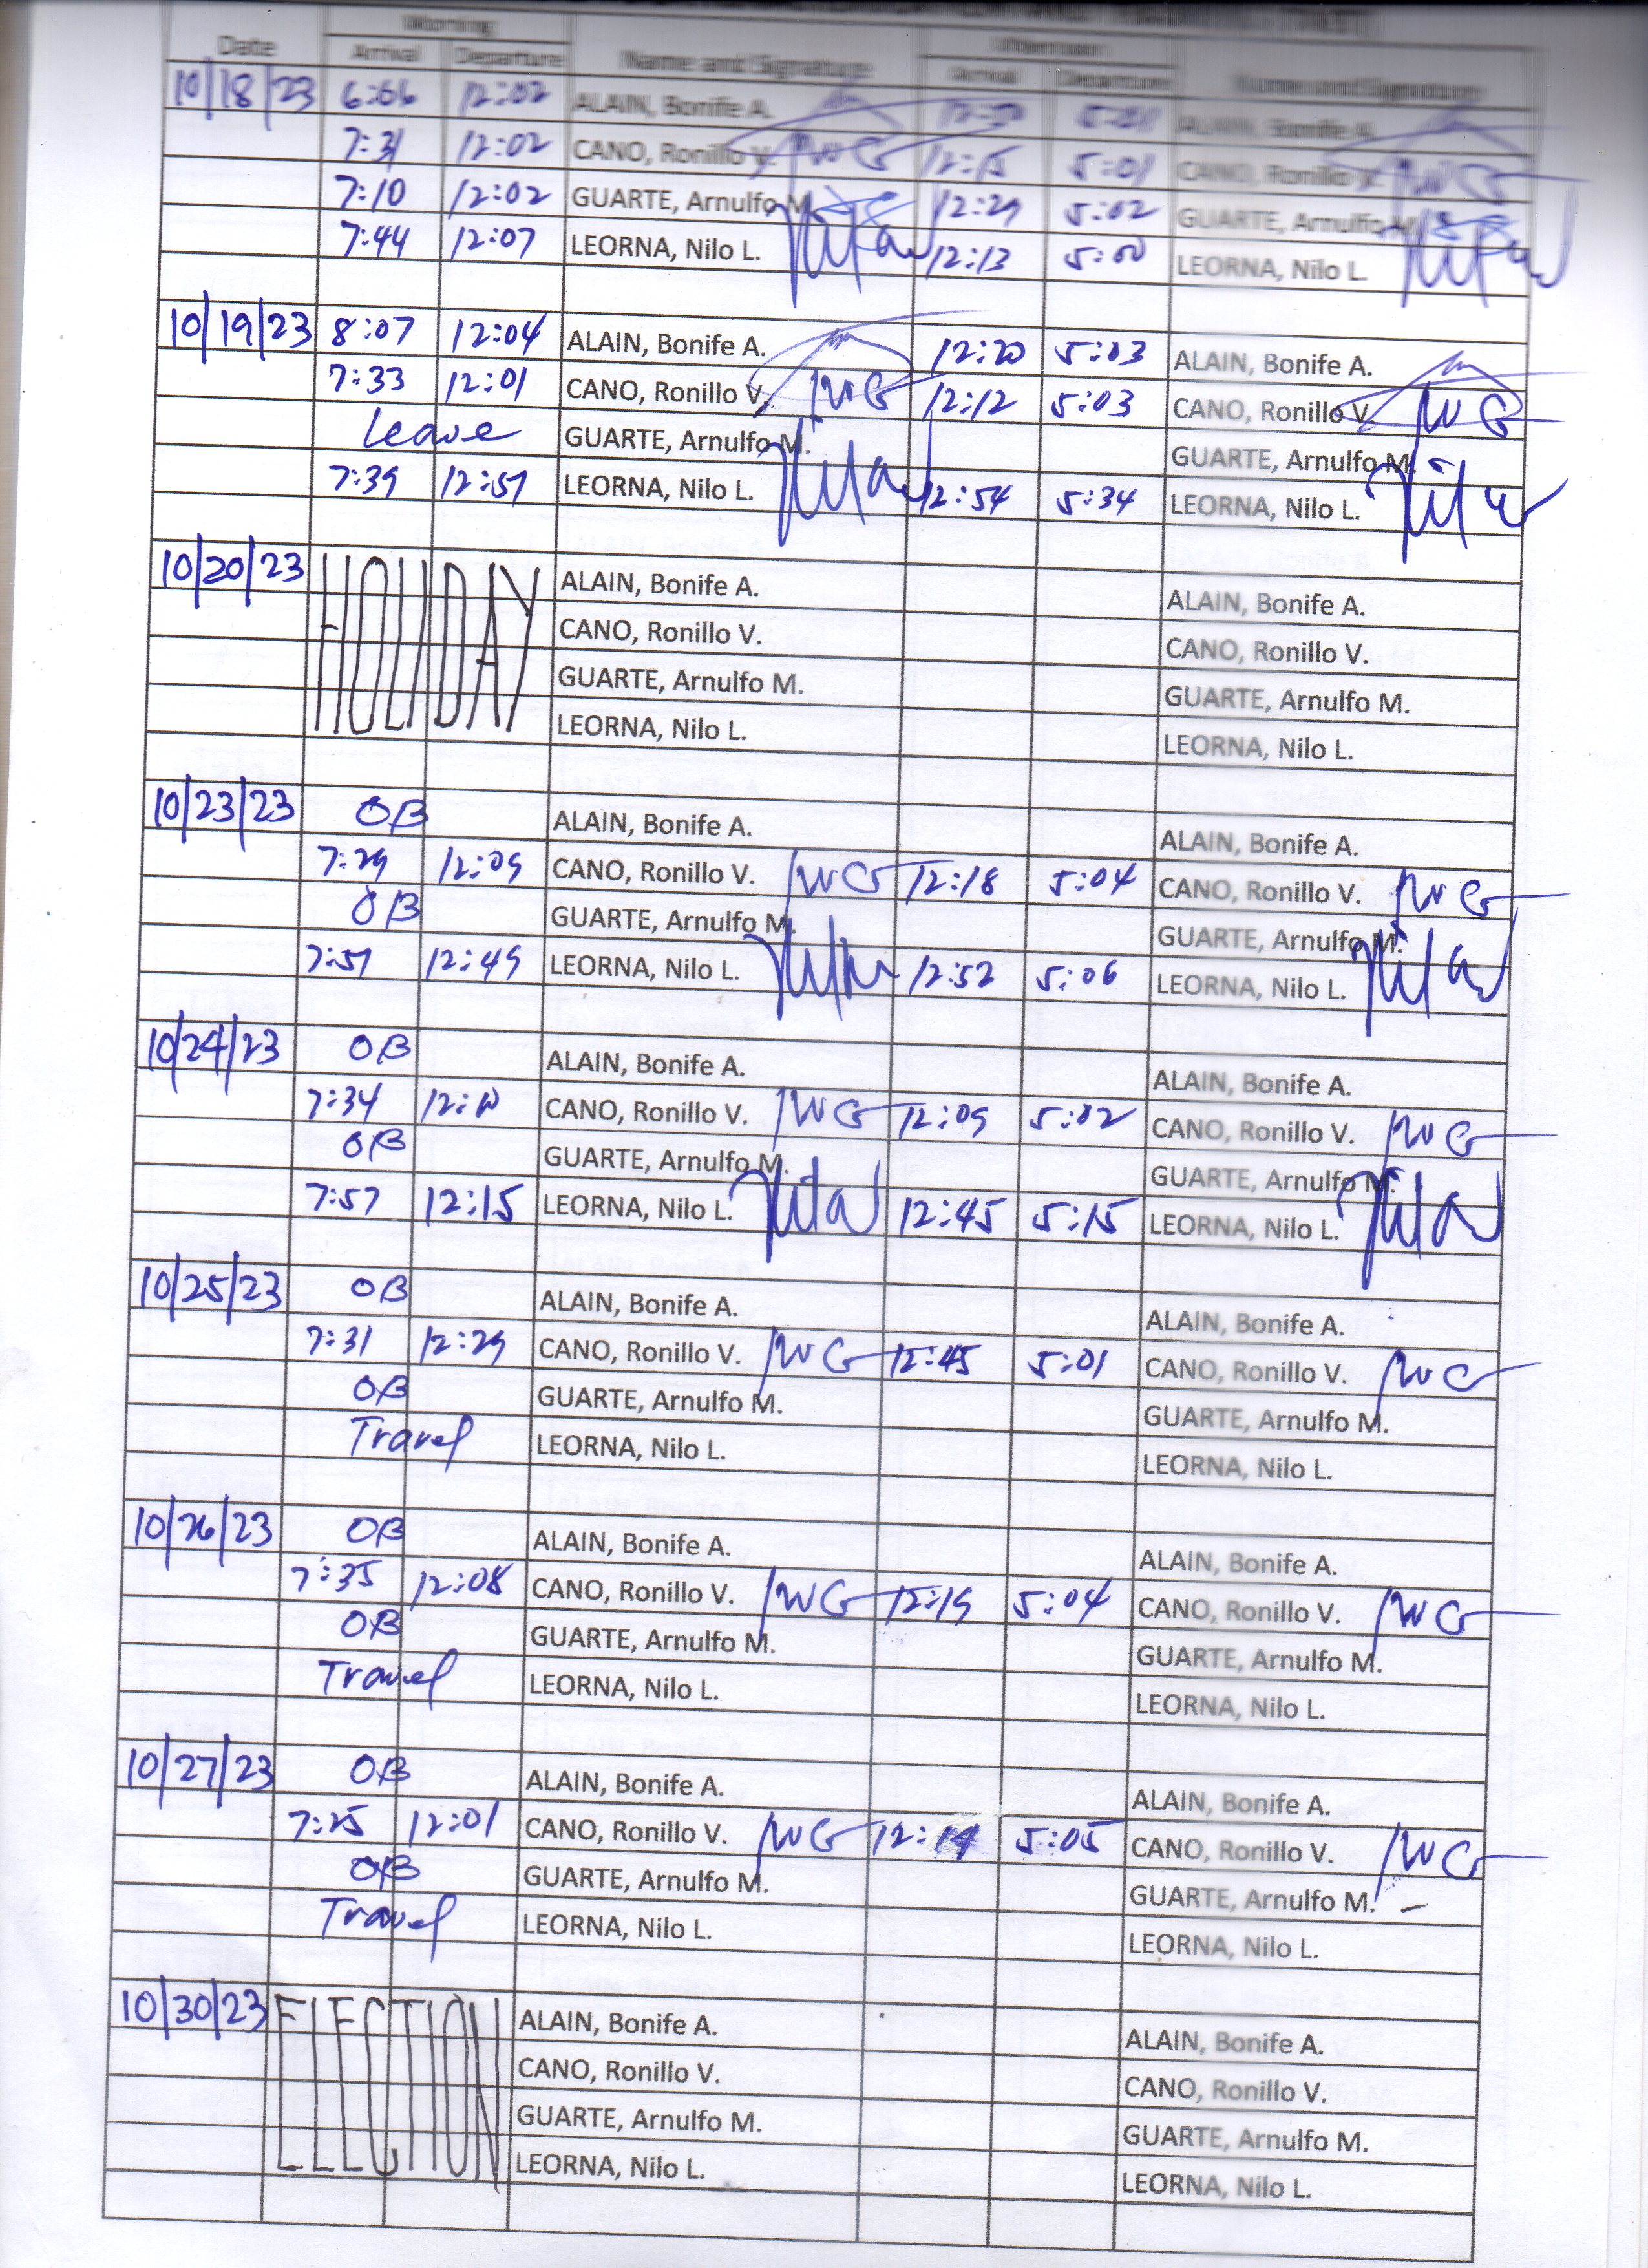 Morning Afternoon
Date Arrival Departure Name and Signature Arrival Departure Name and Signature
10/18/23 12:02 ALAIN, Bonife A. ALAIN, Bonife A.
7:31 12:02 CANO, Ronillo V. 12:15 5:01 CANO, Ronillo V.
7:10 12:02 GUARTE, Arnulfo M. 12:29 5:02 GUARTE, Arnulfo M.
7:44 12:07 LEORNA, Nilo L. 12:13 5:00 LEORNA, Nilo L.
10/19/23 8:07 12:04 ALAIN, Bonife A. 12:20 5:03 ALAIN, Bonife A.
7:33 12:01 CANO, Ronillo V. 12:12 5:03 CANO, Ronillo V.
Leave GUARTE, Arnulfo M. GUARTE, Arnulfo M.
7:39 12:51 LEORNA, Nilo L. 12:54 5:34 LEORNA, Nilo L.
10/20/23 HOLIDAY ALAIN, Bonife A. ALAIN, Bonife A.
CANO, Ronillo V. CANO, Ronillo V.
GUARTE, Arnulfo M. GUARTE, Arnulfo M.
LEORNA, Nilo L. LEORNA, Nilo L.
10/23/23 OB ALAIN, Bonife A. ALAIN, Bonife A.
7:29 12:09 CANO, Ronillo V. 12:18 5:04 CANO, Ronillo V.
OB GUARTE, Arnulfo M. GUARTE, Arnulfo M.
7:51 12:49 LEORNA, Nilo L. 12:52 5:06 LEORNA, Nilo L.
10/24/23 OB ALAIN, Bonife A. ALAIN, Bonife A.
7:34 12:10 CANO, Ronillo V. 12:09 5:02 CANO, Ronillo V.
OB GUARTE, Arnulfo M. GUARTE, Arnulfo M.
7:57 12:15 LEORNA, Nilo L. 12:45 5:15 LEORNA, Nilo L.
10/25/23 OB ALAIN, Bonife A. ALAIN, Bonife A.
7:31 12:29 CANO, Ronillo V. 12:45 5:01 CANO, Ronillo V.
OB GUARTE, Arnulfo M. GUARTE, Arnulfo M.
Travel LEORNA, Nilo L. LEORNA, Nilo L.
10/26/23 OB ALAIN, Bonife A. ALAIN, Bonife A.
7:35 12:08 CANO, Ronillo V. 12:19 5:04 CANO, Ronillo V.
OB GUARTE, Arnulfo M. GUARTE, Arnulfo M.
Travel LEORNA, Nilo L. LEORNA, Nilo L.
10/27/23 OB ALAIN, Bonife A. ALAIN, Bonife A.
7:25 12:01 CANO, Ronillo V. 12:14 5:05 CANO, Ronillo V.
OB GUARTE, Arnulfo M. GUARTE, Arnulfo M.
Travel LEORNA, Nilo L. LEORNA, Nilo L.
10/30/23 ELECTION ALAIN, Bonife A. ALAIN, Bonife A.
CANO, Ronillo V. CANO, Ronillo V.
GUARTE, Arnulfo M. GUARTE, Arnulfo M.
LEORNA, Nilo L. LEORNA, Nilo L.